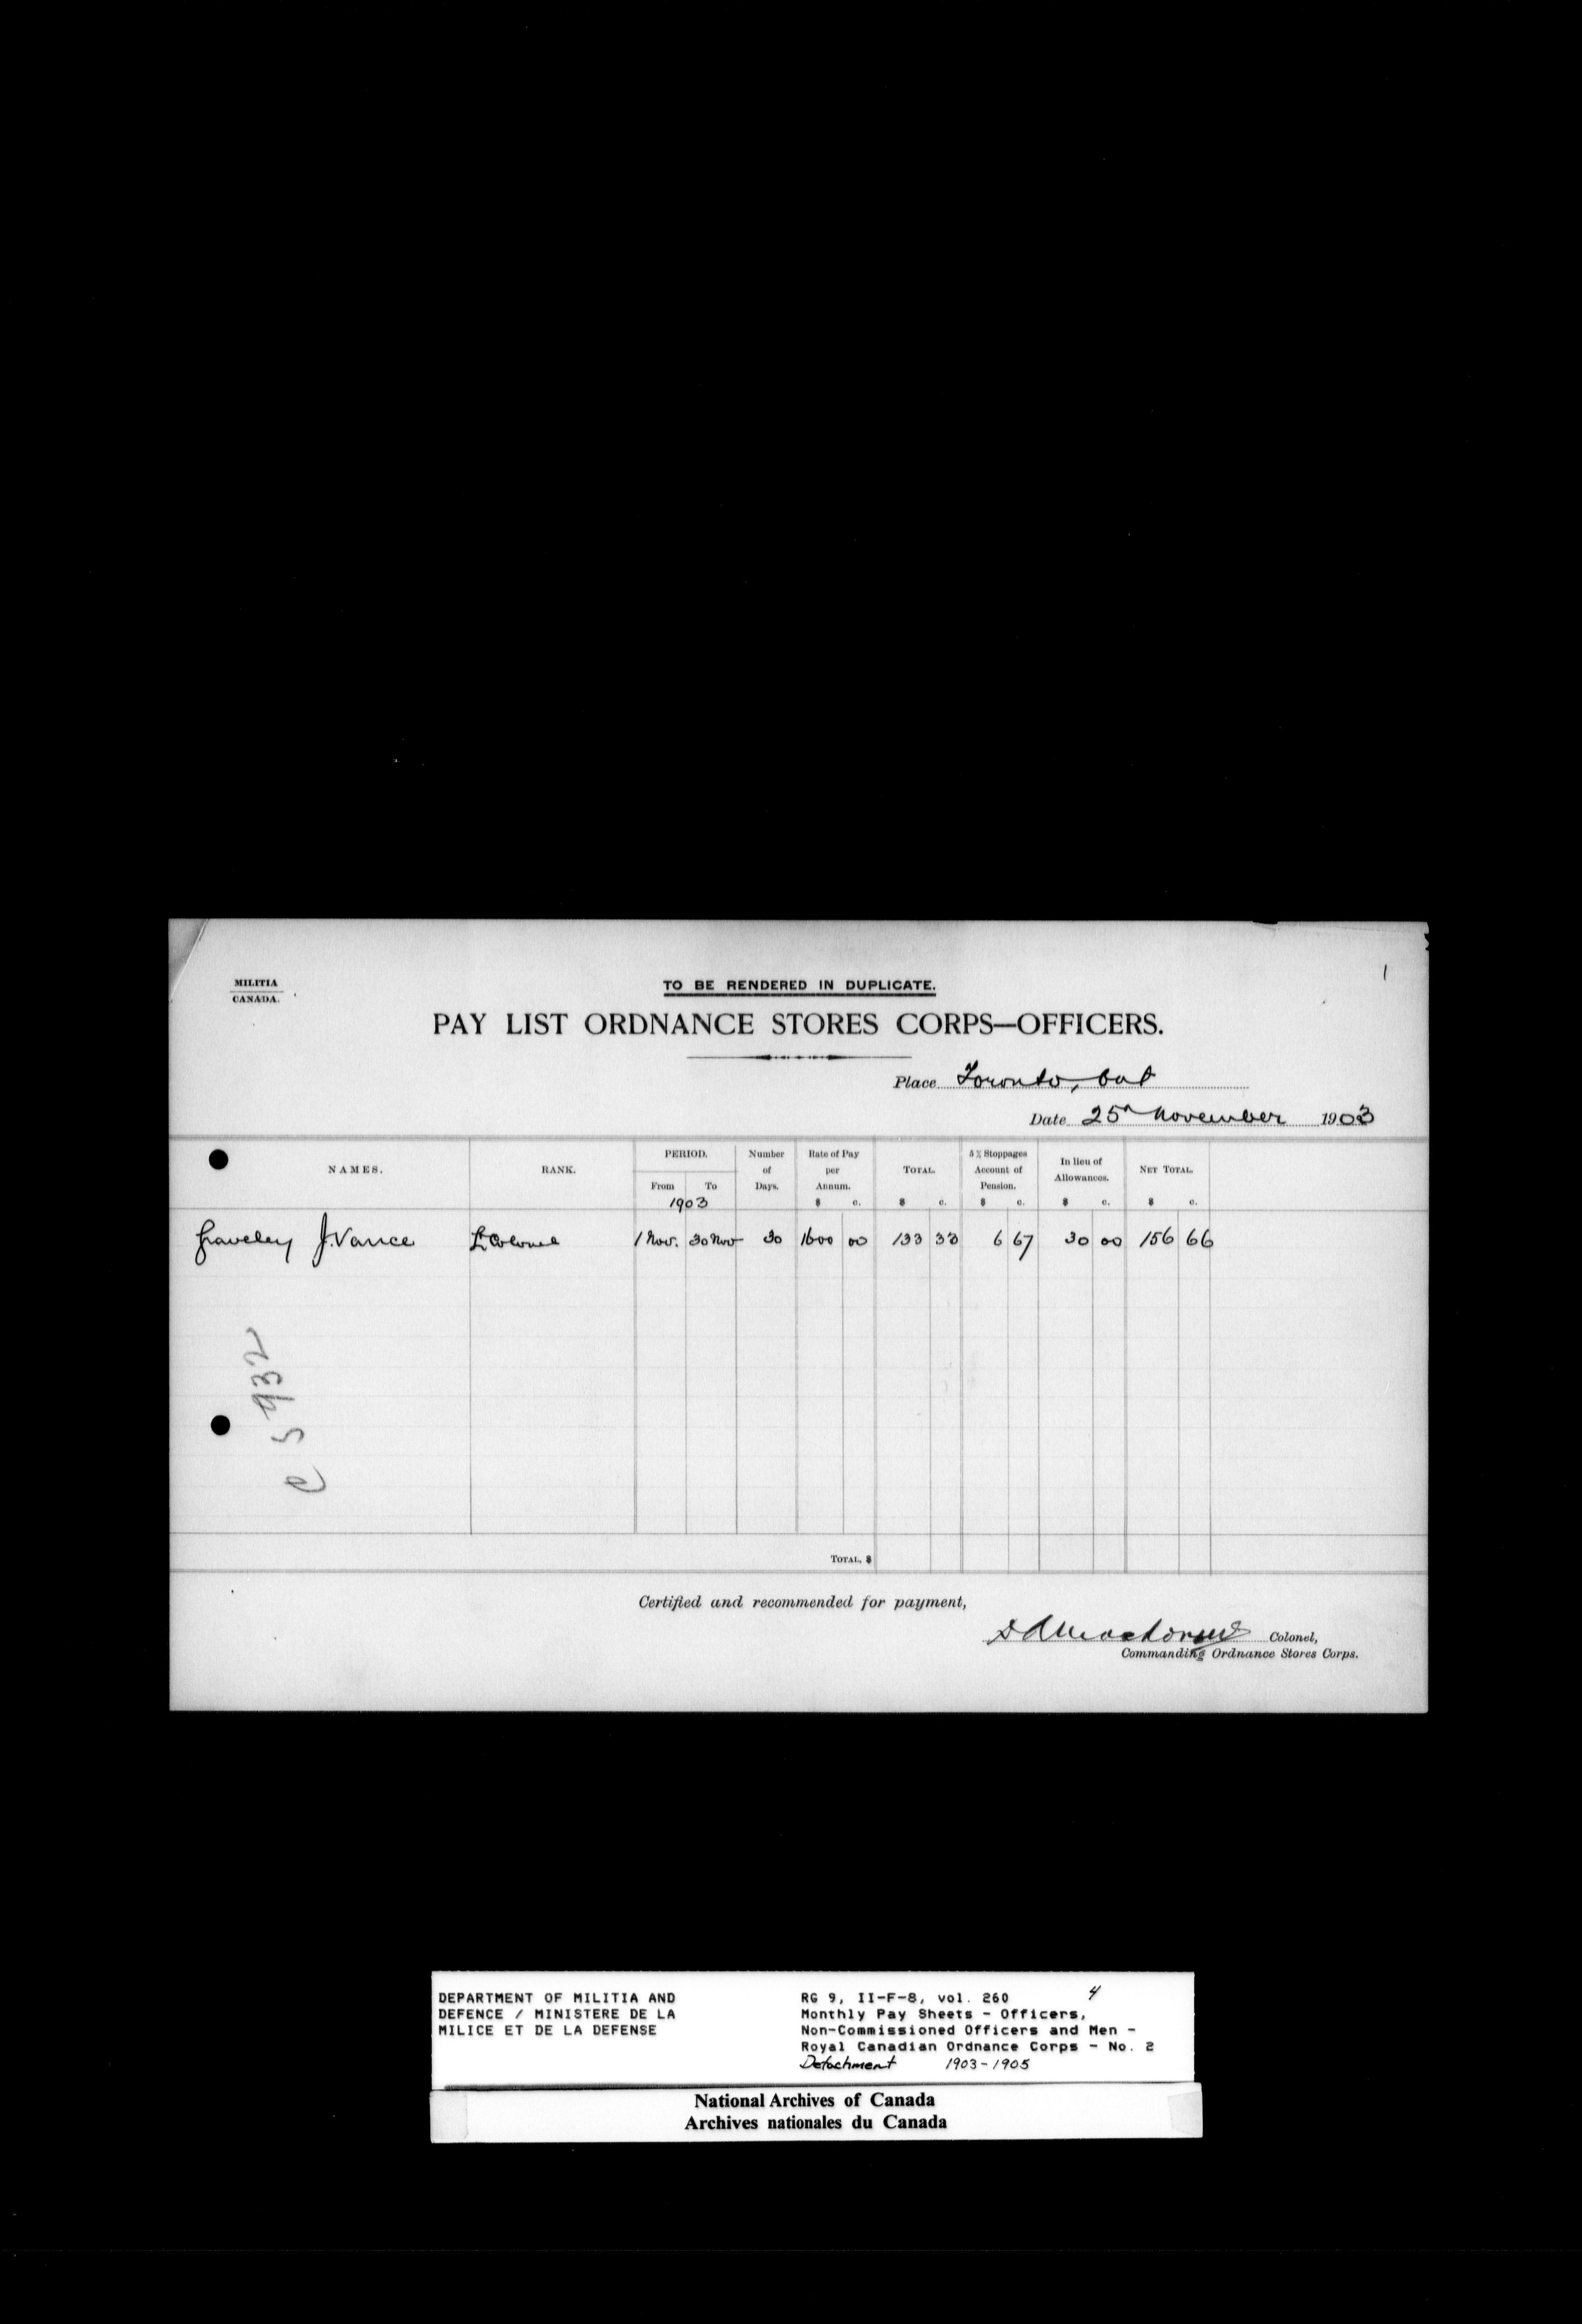 1
MILITIA
CANADA.
TO BE RENDERED IN DUPLICATE.
PAY LIST ORDNANCE STORES CORPS—OFFICERS.
Place Toronto, Ont
Date 25th November 1903
NAMES. RANK. PERIOD. From To 1903 Number of Days. Rate of Pay per Annum. $ c. TOTAL. $ c. 5% Stoppages Account of Pension. $ c. In lieu of Allowances. $ c. NET TOTAL. $ c.
Graveley J. Vance Lt Colonel 1 Nov. 30 Nov 30 1600 00 133 33 6 67 30 00 156 66
C 5932
TOTAL, $
Certified and recommended for payment,
Colonel,
Commanding Ordnance Stores Corps.
DEPARTMENT OF MILITIA AND
DEFENCE / MINISTERE DE LA
MILICE ET DE LA DEFENSE
RG 9, II-F-8, vol. 260 4
Monthly Pay Sheets - Officers,
Non-Commissioned Officers and Men -
Royal Canadian Ordnance Corps - No. 2
Detachment 1903-1905
National Archives of Canada
Archives nationales du Canada